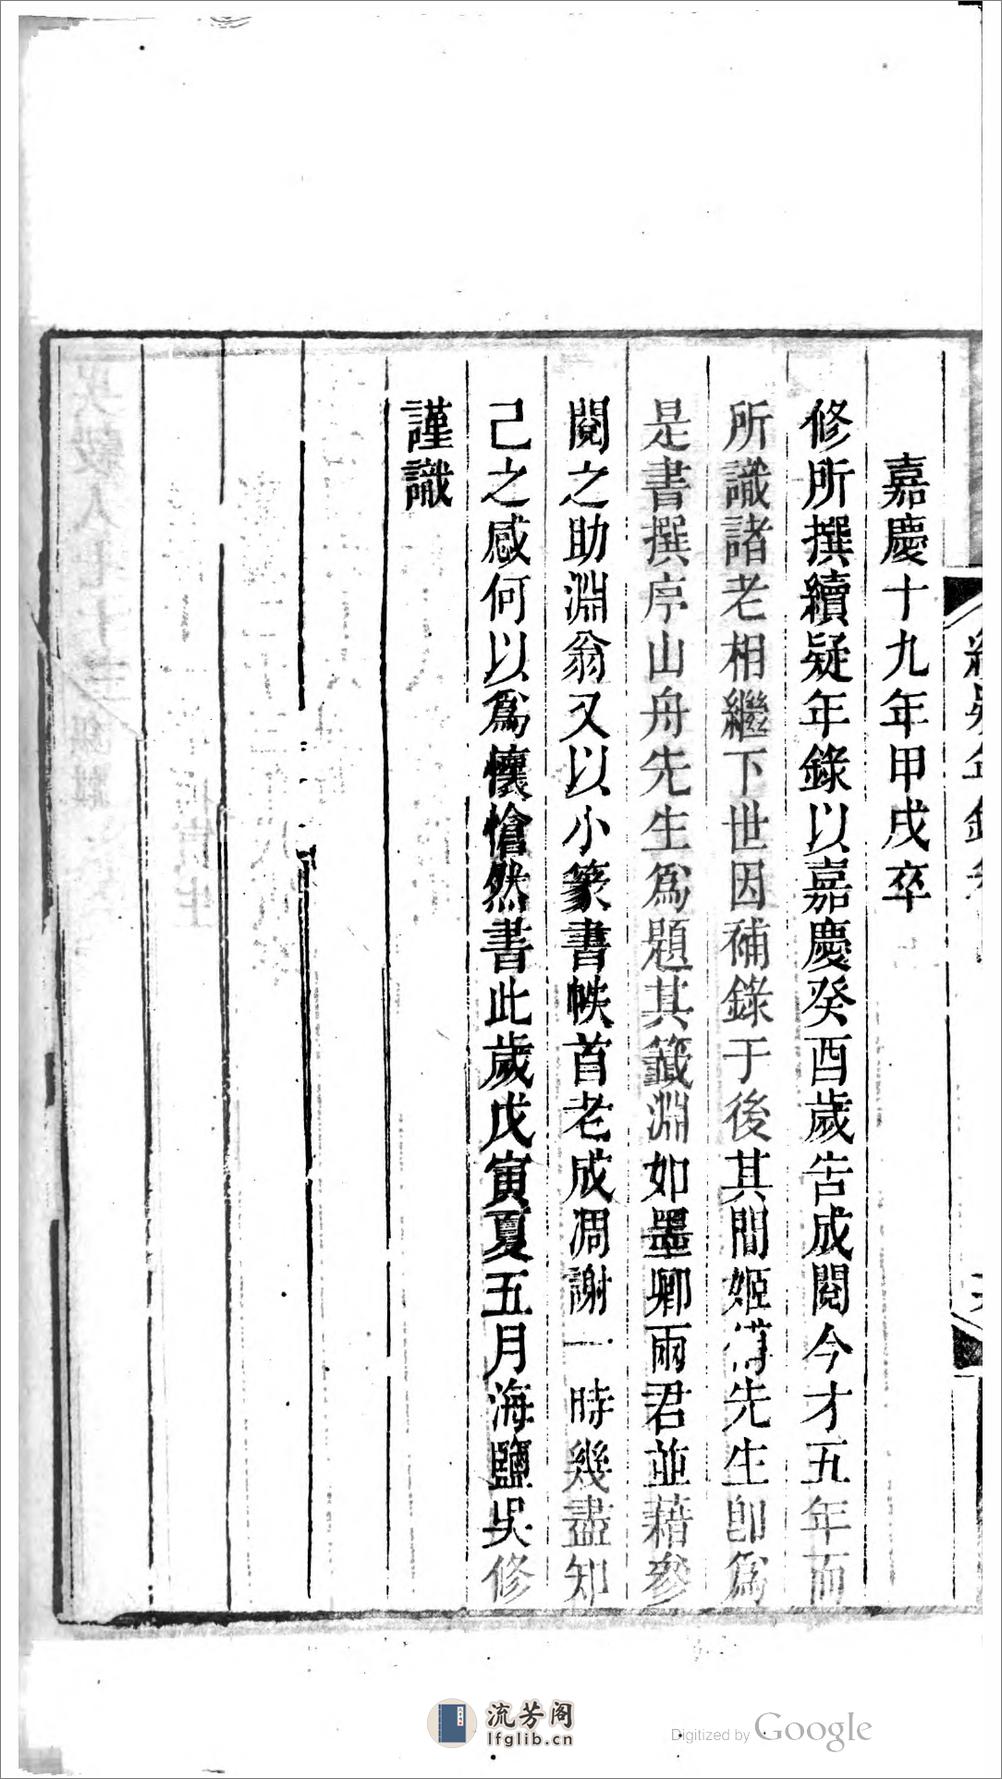 嘉慶十九年甲戌卒
修所撰續疑年錄以嘉慶癸酉歲告成閱今才五年而
所識諸老相繼下世因補錄于後其間姬傳先生卽爲
是書撰序山舟先生爲題其籤淵如墨卿兩君並藉參
閱之助淵翁又以小篆書帙首老成凋謝一時幾盡知
己之感何以爲懷愴然書此歲戊寅夏五月海鹽吳修
謹識
流芳阁
lfglib.cn
Digitized by Google